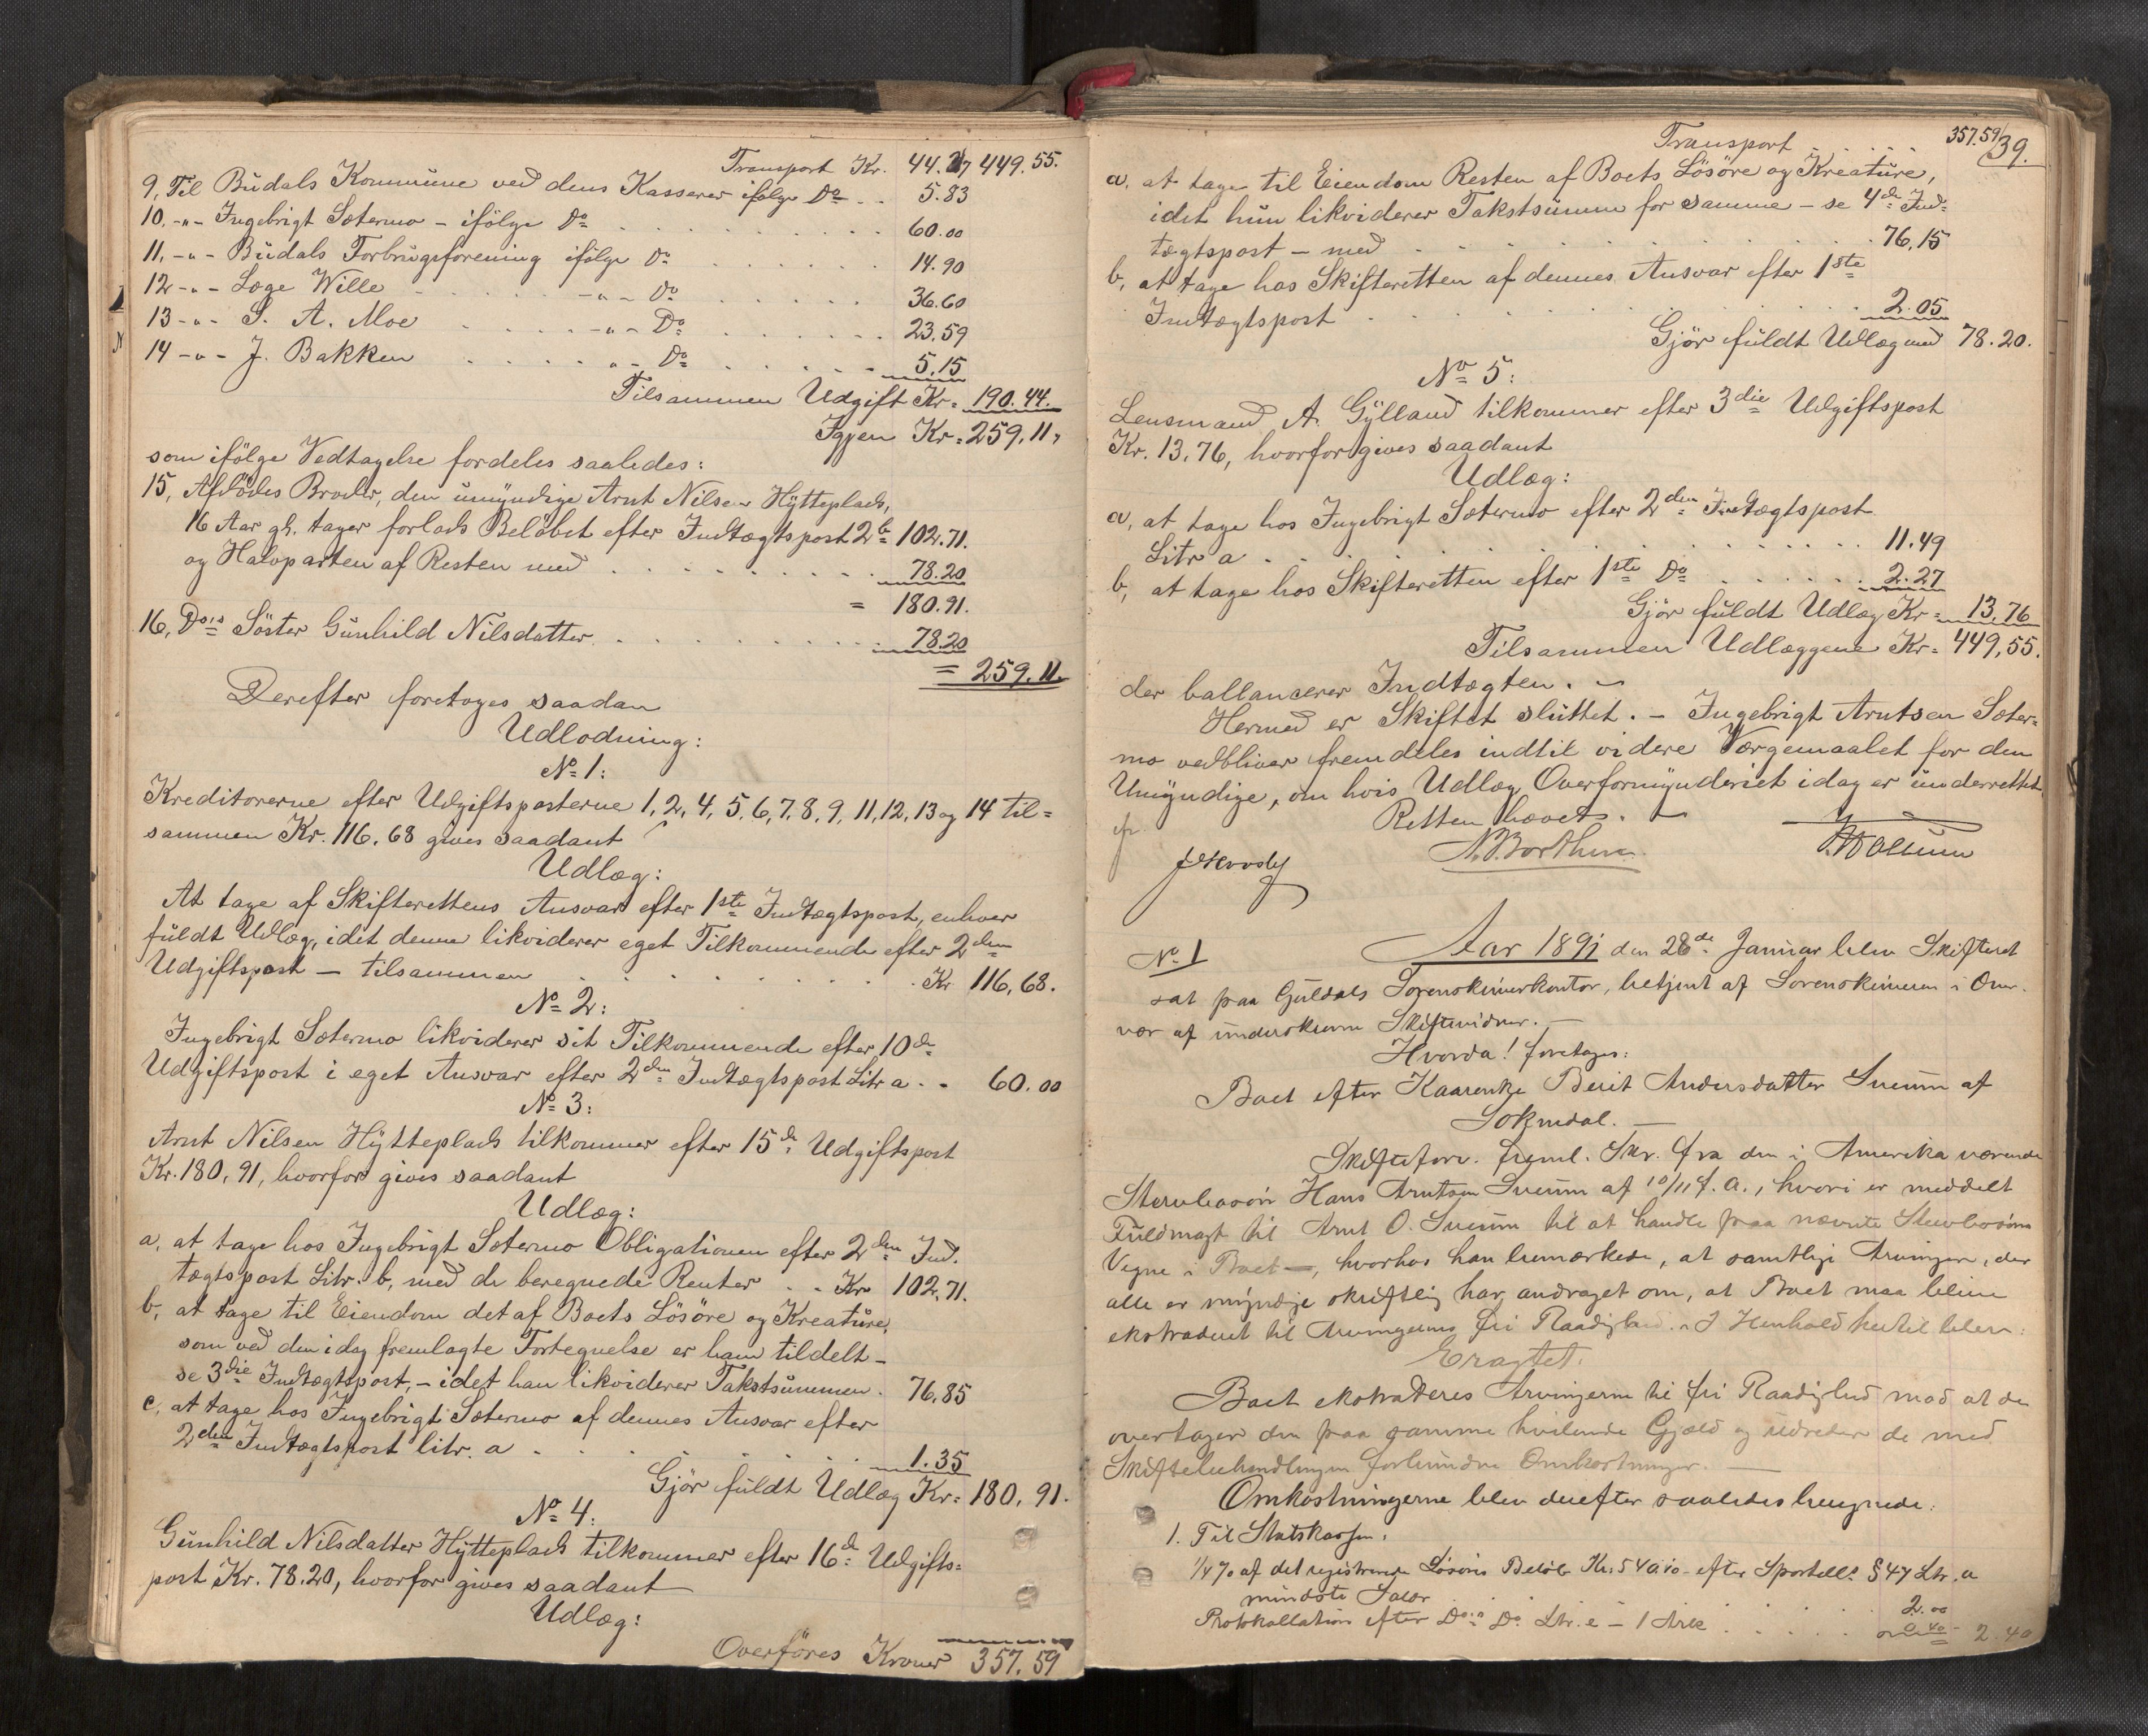 Transport Kr. 44.37 449.55.
9, Til Budals Kommune ved dens Kasserer ifølge Do . . 5.83
10. -"- Ingebrigt Sætermo - ifölge Do . . . 60.00
11, -"- Budals Forbrugsforening ifölge Do . . . 14.90
12 -"- Læge Wille . . . -"- Do . . . 36.60
13 -"- S. A. Moe . . . -"- Do . . . 23.59
14 -"- J. Bakken . . . "- Do . . . 5.15
Tilsammen Udgift Kr. 190.44.
Igjen Kr. 259.11,
som ifölge Vedtagelse fordeles saaledes:
15, Afdödes Broder, den umyndige Arnt Nilsen Hytteplads,
16 Aar gl. tager forlods Belöbet efter Indtægtspost 2 b 102.71.
og Halvparten af Resten med . . . 78.20
= 180.91.
16, Do's Söster Gunhild Nilsdatter . . . 78.20
= 259.11.
Derefter foretoges saadan
Udlodning:
No 1:
Kreditorerne efter Udgiftsposterne 1, 2, 4, 5, 6, 7, 8, 9, 11, 12, 13 og 14 til=
sammen Kr. 116.68 gives saadant
Udlæg:
At tage af Skifterettens Ansvar efter 1ste Indtægtspost, enhver
fuldt Udlæg, idet denne likviderer eget Tilkommende efter 2den
Udgiftspost - tilsammen . . . Kr 116,68.
No 2:
Ingebrigt Sætermo likviderer sit Tilkommende efter 10de
Udgiftspost i eget Ansvar efter 2den Indtægtspost Litr a . . 60.00
No 3:
Arnt Nilsen Hytteplads tilkommer efter 15de Udgiftspost
Kr. 180,91, hvorfor gives saadant
Udlæg:
a, at tage hos Ingebrigt Sætermo Obligationen efter 2den Ind.
tægtspost Litr. b, med de beregnede Renter . . Kr 102.71.
b, at tage til Eiendom det af Boets Lösöre og Kreature,
som ved den idag fremlagte Fortegnelse er ham tildelt -
se 3die Indtægtspost, - idet han likviderer Takstsummen . 76,85
c, at tage hos Ingebrigt Sætermo af dennes Ansvar efter
2den Indtægtspost litr. a . . . 1.35
Gjör fuldt Udlæg Kr. 180,91.
No 4:
Gunhild Nilsdatter Hytteplads tilkommer efter 16de Udgifts=
post Kr. 78.20, hvorfor gives saadant
Udlæg:
Overföres Kroner 357.59
39.
Transport . . . 357.59
a, at tage til Eiendom Resten af Boets Lösöre og Kreature,
idet hun likviderer Takstsummen for samme - se 4de Ind=
tægtspost - med . . . 76,15
b, at tage hos Skifteretten af dennes Ansvar efter 1ste
Indtægtspost . . . 2.05
Gjör fuldt Udlæg med 78.20.
No 5:
Lensmand A. Gylland tilkommer efter 3die Udgiftspost
Kr. 13.76, hvorfor gives saadant
Udlæg:
a, at tage hos Ingebrigt Sætermo efter 2den Indtægtspost
Litr a . . . 11.49
b, at tage hos Skifteretten efter 1ste Do . . . 2.27
Gjör fuldt Udlæg Kr. 13,76
Tilsammen Udlæggene Kr. 449,55.
der ballancerer Indtægten. -
Hermed er Skiftet sluttet. - Ingebrigt Arntsen Sæter=
mo vedbliver fremdeles indtil videre Værgemaalet for den
Umyndige, om hvis Udlæg Overformynderiet idag er underrettet.
Retten hævet. -
No 1
Aar 1891 den 28de Januar blev Skifteret
sat paa Guldals Sorenskriverkontor, betjent af Sorenskriveren i Over=
vær af underskrevne Skiftevidner. -
Hvorda! foretoges:
Boet efter Kaarenke Berit Andersdatter Sneeun af
Soknedal. -
Skifteforv. freml. Skr. fra den i Amerika værende
Stervbosön Hans Arntsen Sneeun af 10/11 f. a., hvori er meddelt
Fuldmagt til Arnt O. Sneeun til at handle paa nævnte Stervbosöns
Vegne i Boet -, hvorhos han bemærkede, at samtlige Arvinger, der
alle er myndige skriftlig har andraget om, at Boet maa blive
ekstraderet til Arvingernes fri Raadighed. - I Henhold hertil blev:
Eragtet:
Boet ekstraderes Arvingerne til fri Raadighed mod at de
overtager den paa samme hvilende Gjæld og udreder de med
Skiftebehandlingen forbundne Omkostninger. -
Omkostningerne blev derefter saaledes beregnede:
1. Til Statskassen:
1/4 % af det registrerede Lösöres Belöb Kr. 540.10 - efter Sportell. § 47 Ltr. a
mindste Salær . . . 2.00
Protokollation efter Do's Do Ltr. e - 1 Ark . . . 0.40 2.40